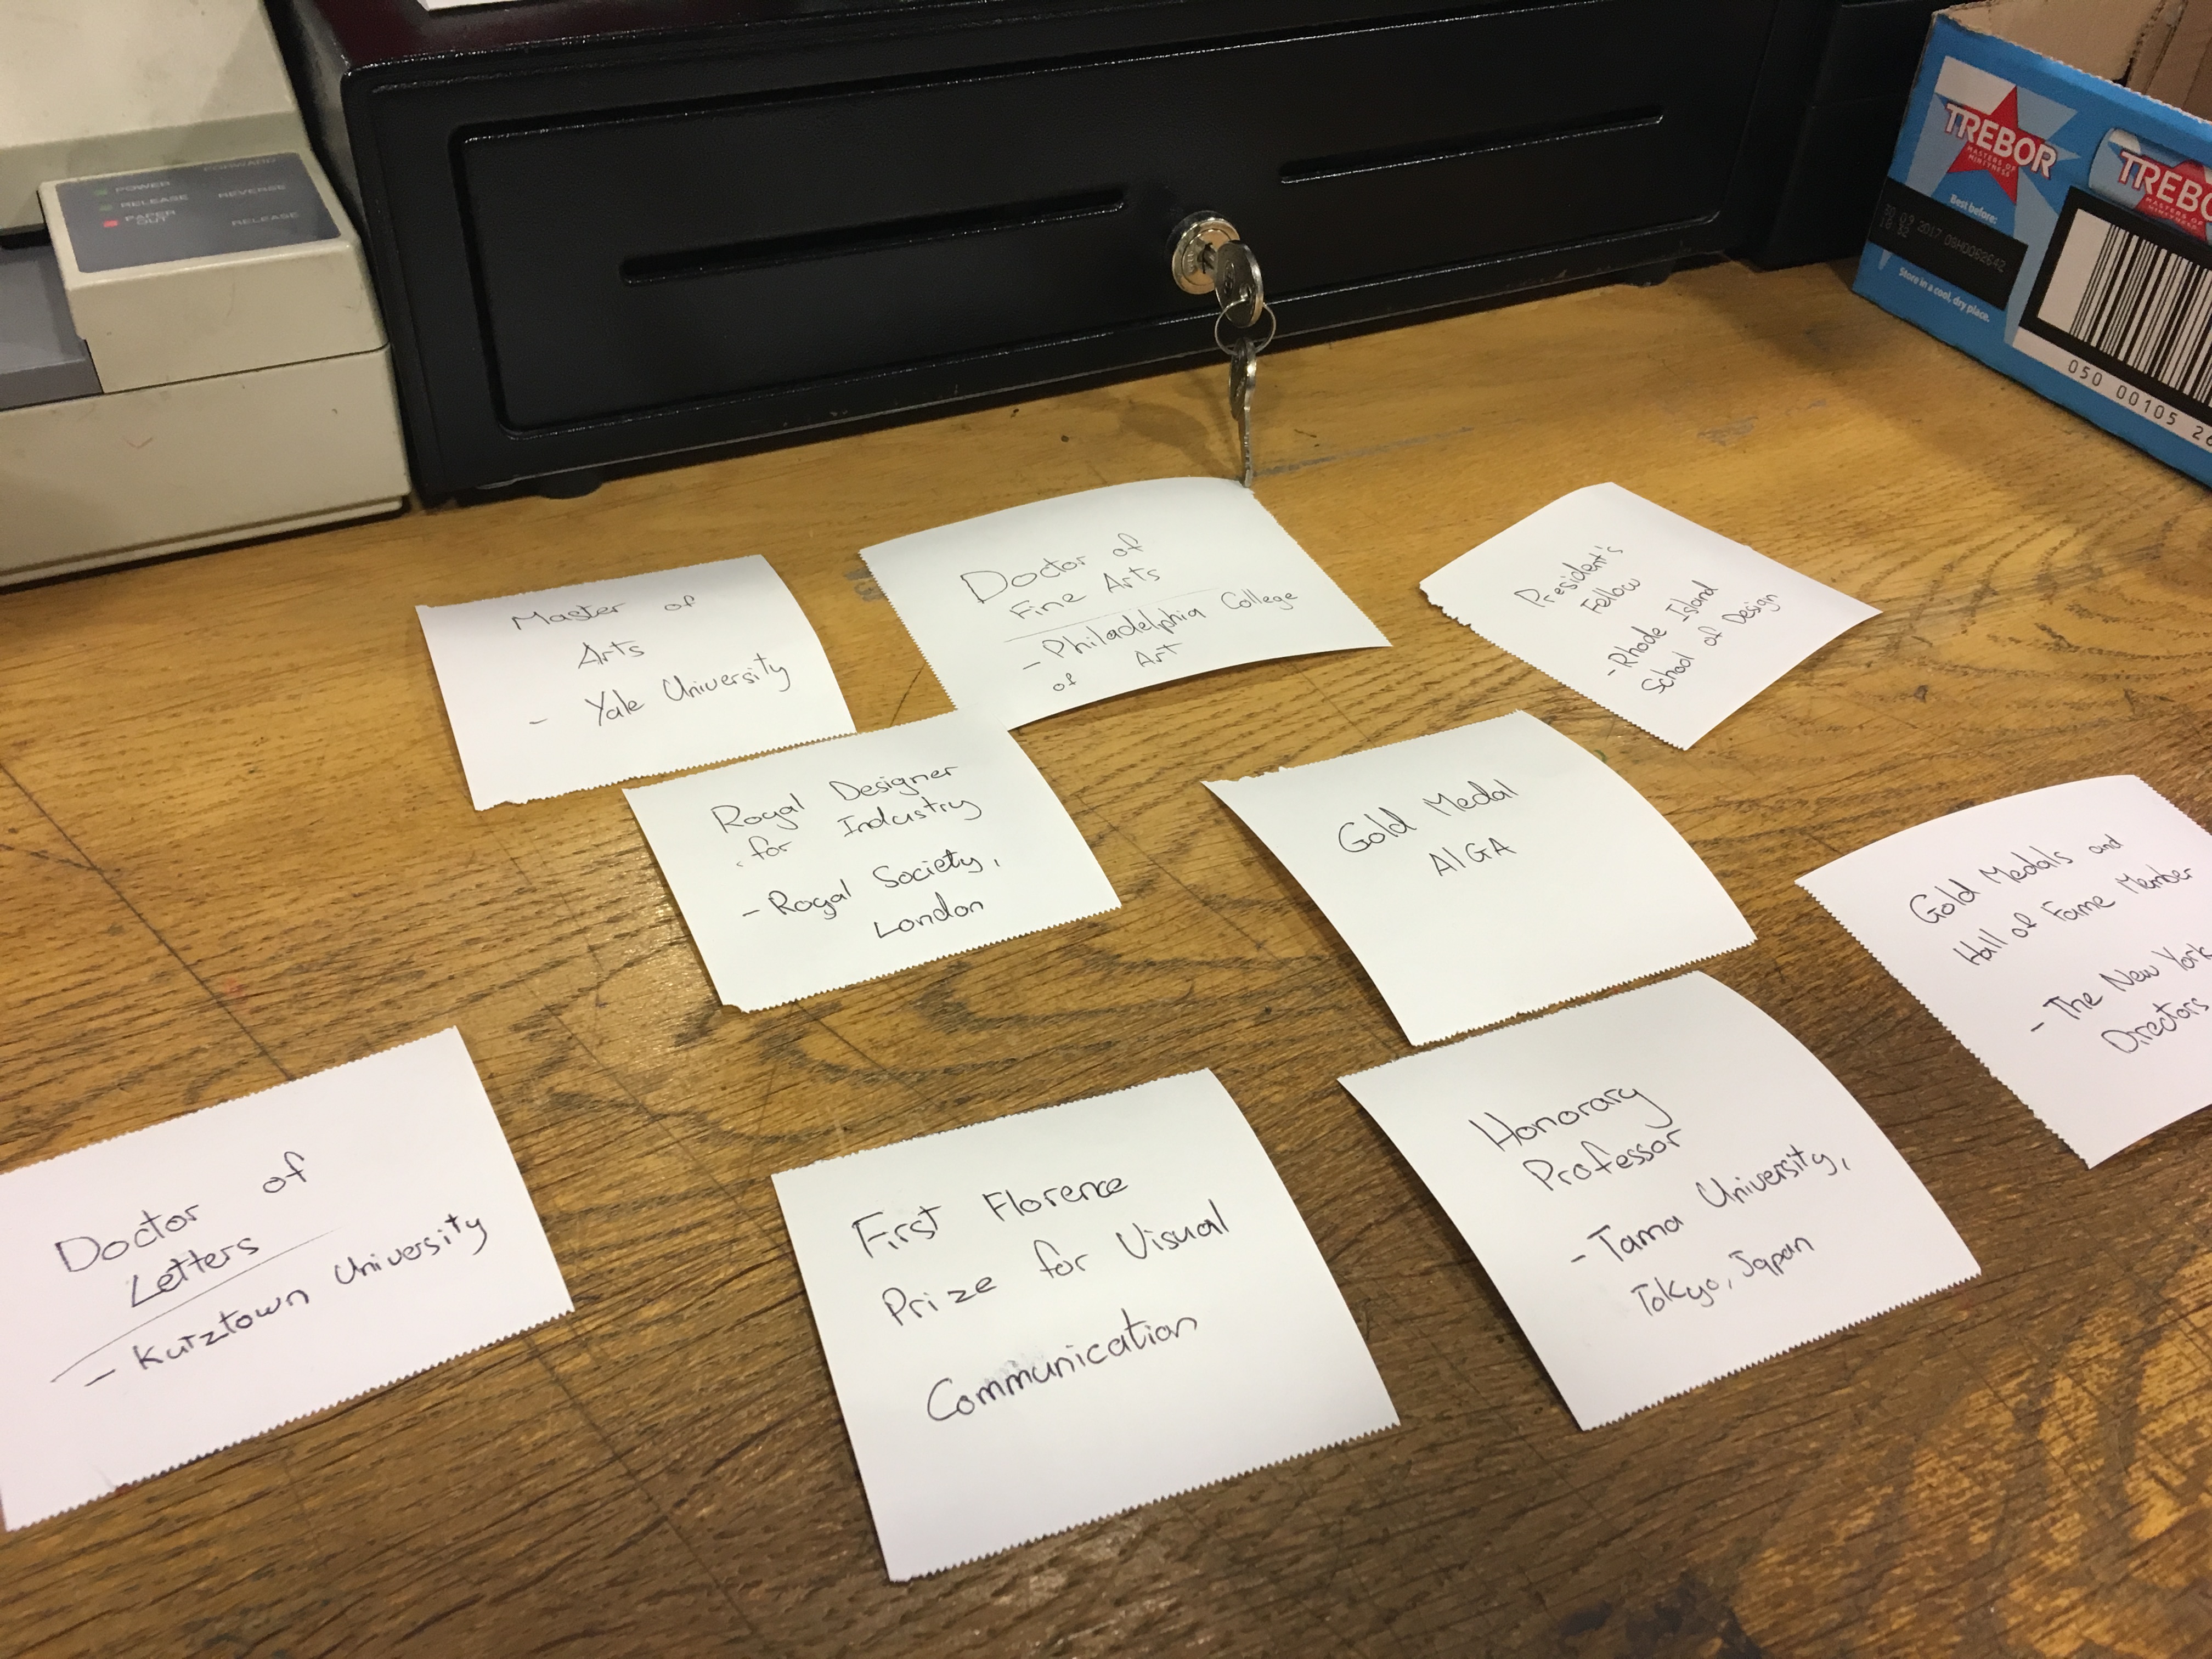 FORWARD
POWER
RELEASE
REVERSE
PAPER
OUT
RELEASE
TREBOR
MASTERS OF
MINTYNESS
Best before:
30 09 2017
Store in a cool, dry place.
050
00105
TREBO
Master of
Arts
- Yale University
Doctor of
Fine Arts
- Philadelphia College
of Art
President's
Fellow
- Rhode Island
School of Design
Royal Designer
for Industry
- Royal Society,
London
Gold Medal
AIGA
Gold Medals and
Hall of Fame Member
- The New York
Directors
Doctor of
Letters
- Kutztown University
First Florence
Prize for Visual
Communication
Honorary
Professor
- Tama University,
Tokyo, Japan